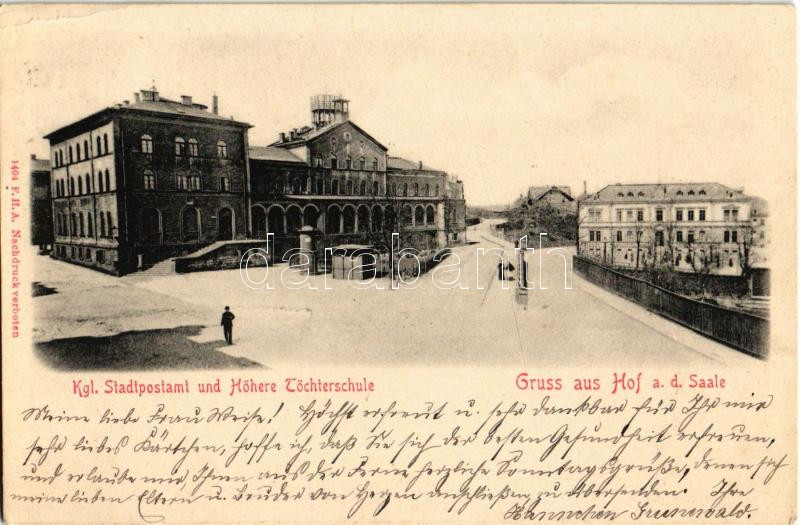 1404 F.H.A. Nachdruck verboten
darabanth
Kgl. Stadtpostamt und Höhere Töchterschule
Gruss aus Hof a. d. Saale
Meine liebe Frau Weise! Höchst erfreut u. sehr dankbar für Ihr mir
sehr liebes Kärtchen, hoffe ich, daß Sie sich der besten Gesundheit erfreuen,
und erlaube mir Ihnen aus der Ferne herzliche Sonntagsgrüße, denen sich
meine lieben Eltern u. Bruder von Herzen anschließen, zu übersenden. Ihre
Hannchen Grunewald.